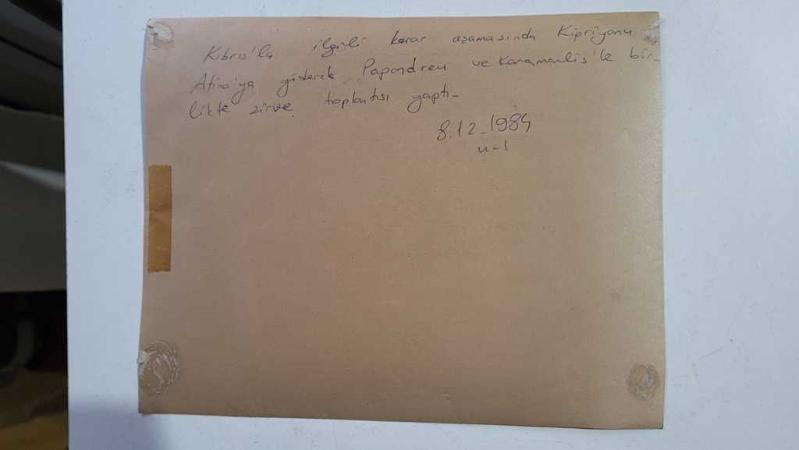 Kıbrıs'la ilgili karar aşamasında Kipriyanu
Atina'ya giderek Papandreu ve Karamanlis'le bir-
likte zirve toplantısı yaptı-
8.12.1984
u-1